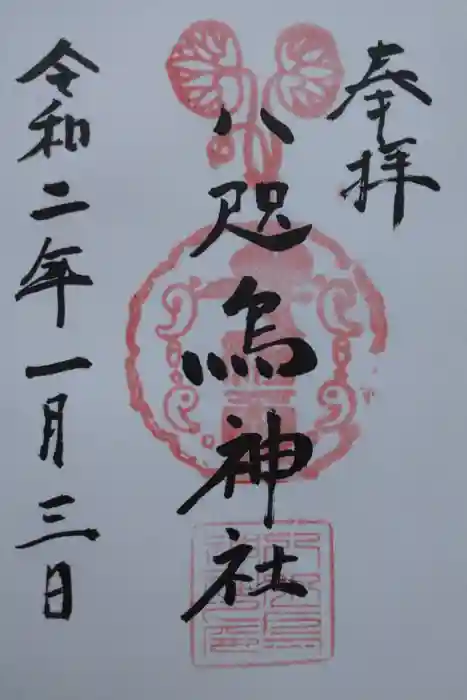 奉拝
八咫烏神社
令和二年一月三日